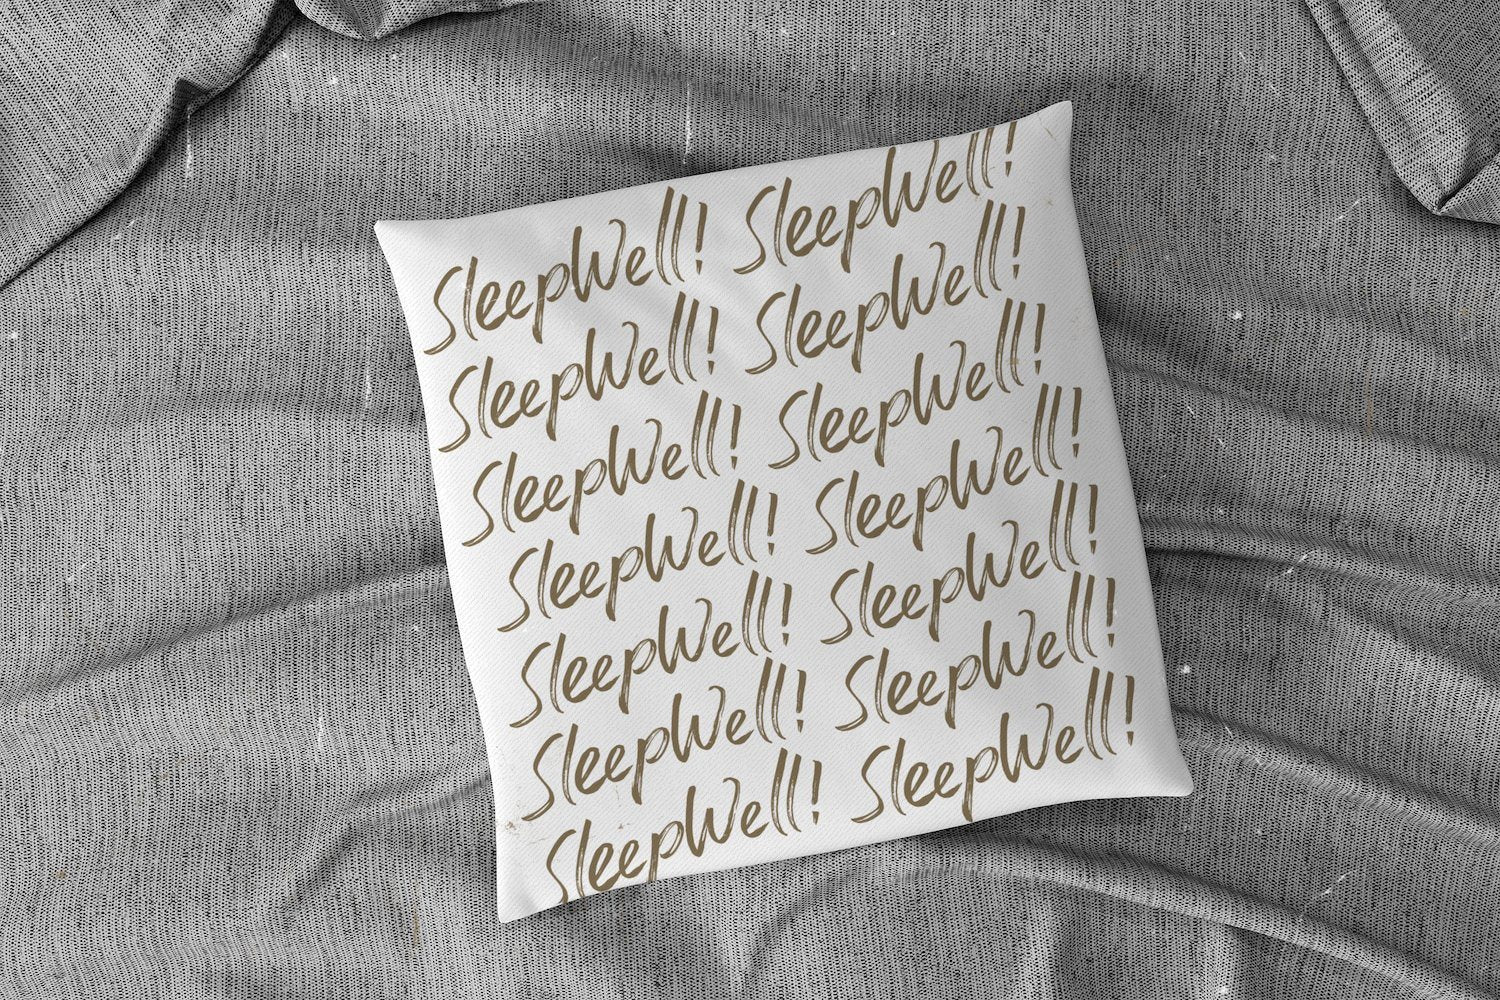 SleepWell! SleepWell!
SleepWell! SleepWell!
SleepWell! SleepWell!
SleepWell! SleepWell!
SleepWell! SleepWell!
SleepWell! SleepWell!
SleepWell! SleepWell!